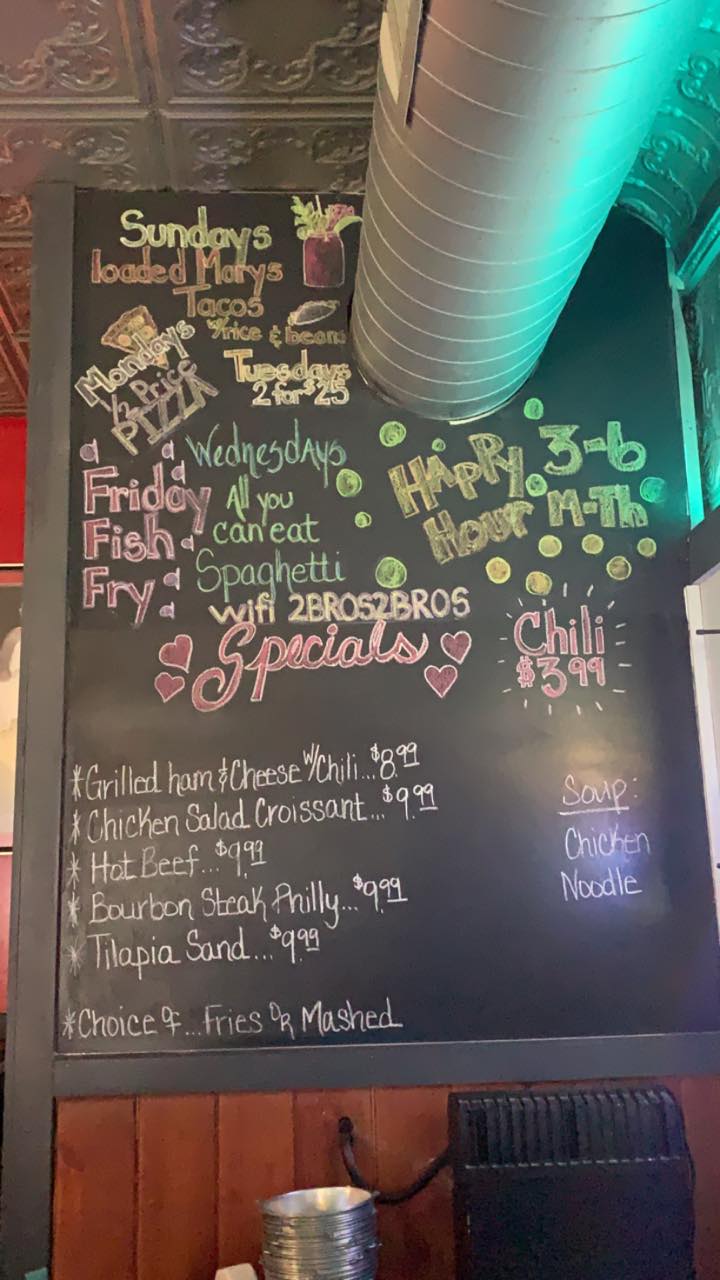 Sundays
loaded Marys
Tacos
w/rice & beans
Mondays
1/2 Price
PIZZA
Tuesdays
2 for $25
Wednesdays
All you
can eat
Spaghetti
Friday
Fish
Fry
Happy Hour 3-6
M-Th
wifi 2BROS2BROS
Specials
Chili
$3.99
*Grilled ham & Cheese w/Chili...$8.99
*Chicken Salad Croissant...$9.99
*Hot Beef...$9.99
*Bourbon Steak Philly...$9.99
*Tilapia Sand...$9.99
*Choice of...Fries or Mashed
Soup:
Chicken
Noodle